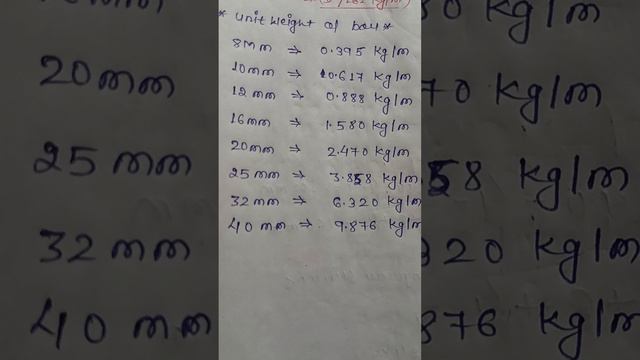 * unit weight of bar *
8mm ⇒ 0.395 kg/m
10mm ⇒ 0.617 kg/m
12mm ⇒ 0.888 kg/m
16mm ⇒ 1.580 kg/m
20mm ⇒ 2.470 kg/m
25 mm ⇒ 3.858 kg/m
32 mm ⇒ 6.320 kg/m
40 mm ⇒ 9.876 kg/m
20mm
25 mm
32 mm
40 mm
70 kg/m
58 kg/m
320 kg/m
876 kg/m